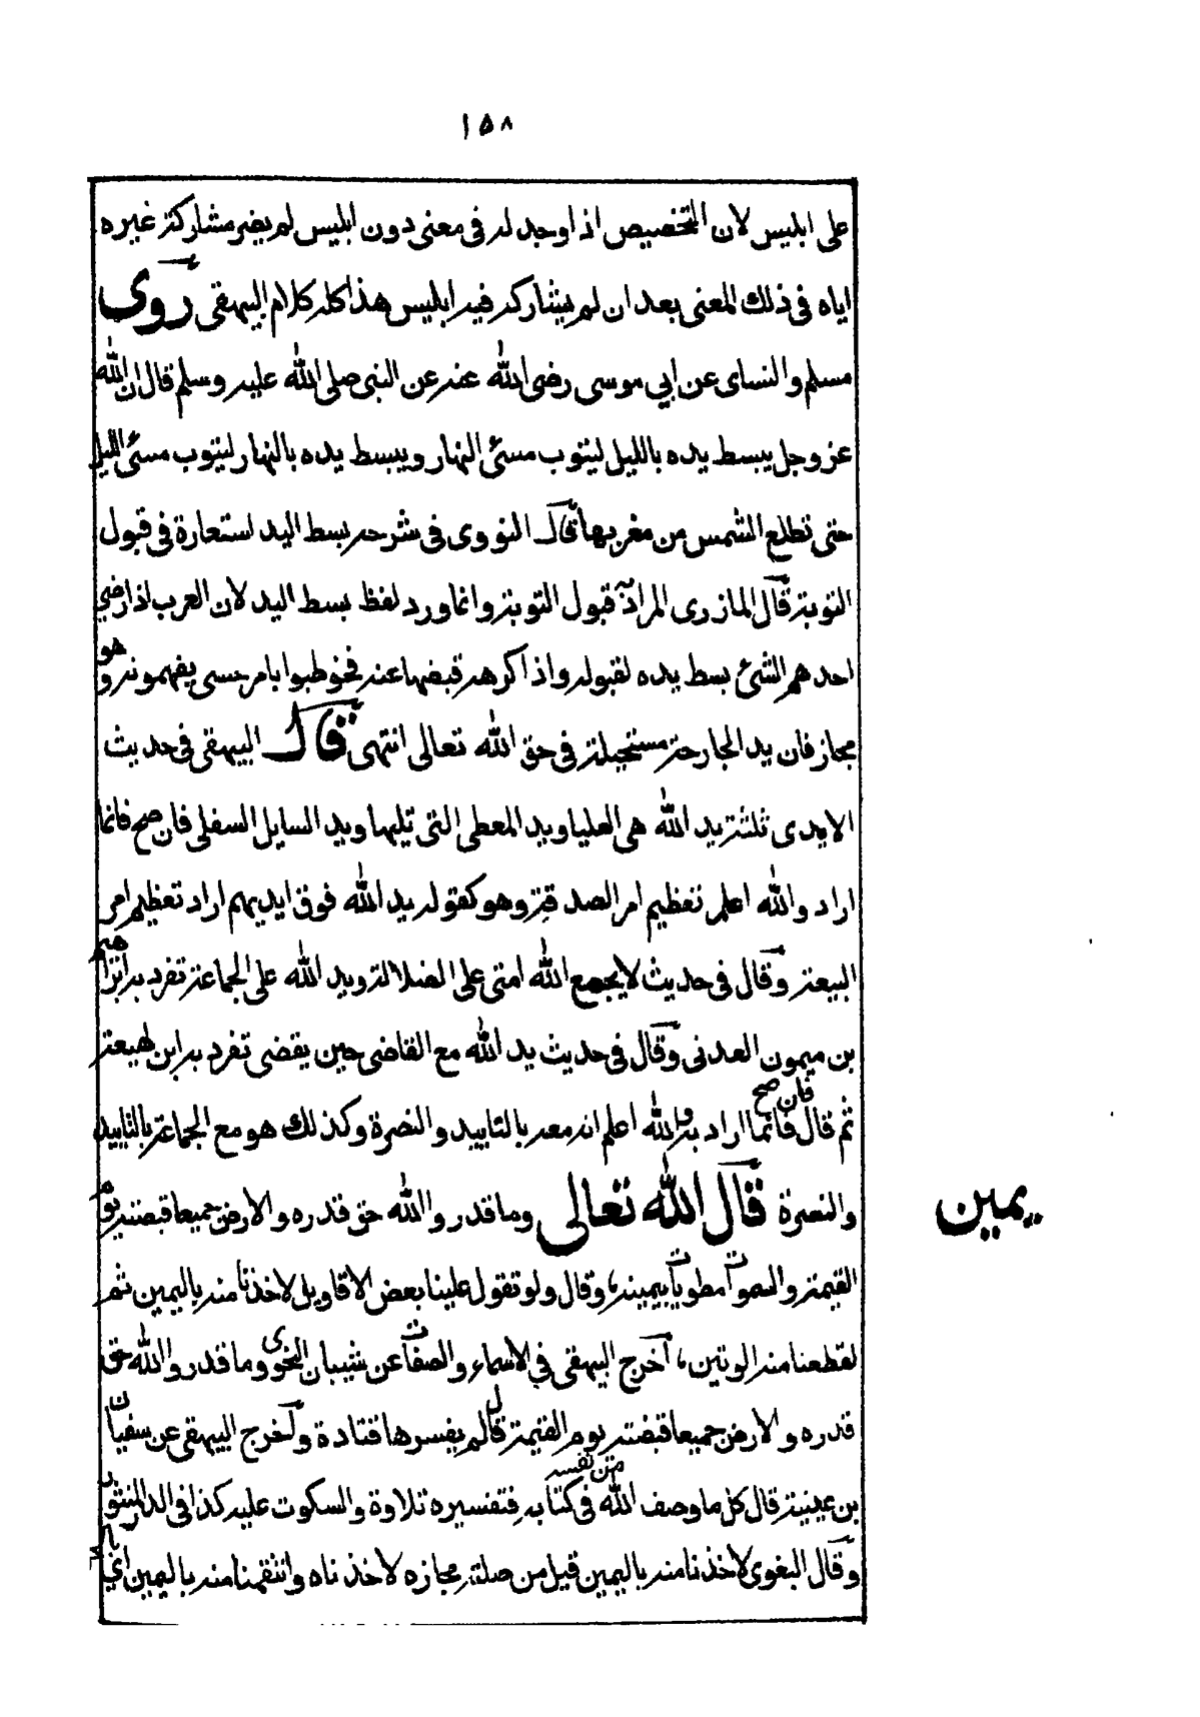 ١٥٨
على ابليس لان التخصيص اذا وجد له فى معنى دون ابليس لم يضر مشاركة غيره
اياه فى ذلك المعنى بعد ان لم يشاركه فيه ابليس هذا كله كلام البيهقى روى
مسلم والنساى عن ابي موسى رضى الله عنه عن النبى صلى الله عليه وسلم قال ان الله
عز وجل يبسط يده بالليل ليتوب مسئ النهار ويبسط يده بالنهار ليتوب مسئ الليل
حتى تطلع الشمس من مغربها قال النووى فى شرحه بسط اليد استعارة فى قبول
التوبة قال المازرى المراد به قبول التوبة وانما ورد لفظ بسط اليد لان العرب اذا رضي
احدهم الشئ بسط يده لقبوله واذا كرهه قبضها عنه فخوطبوا بامر حسى يفهمونه وهو
مجاز فان يد الجارحة مستحيلة فى حق الله تعالى انتهى قال البيهقى فى حديث
الايدى ثلثة يد الله هى العليا ويد المعطى التى تليها ويد السايل السفلى فان صح فانما
اراد والله اعلم تعظيم امر الصدقة وهو كقوله يد الله فوق ايديهم اراد تعظيم امر
البيعة وقال فى حديث لا يجمع الله امتى على الضلالة ويد الله على الجماعة تفرد به ابراهيم
بن ميمون العدنى وقال فى حديث يد الله مع القاضى حين يقضى تفرد به ابن لهيعة
ثم قال فان صح فانما اراد به والله اعلم انه معه بالتاييد والنصرة وكذلك هو مع الجماعة بالتاييد
والنصرة قال الله تعالى وما قدروا الله حق قدره والارض جميعا قبضته يوم
يمين
القيمة والسموات مطويات بيمينه، وقال ولو تقول علينا بعض الاقاويل لاخذنا منه باليمين ثم
لقطعنا منه الوتين، اخرج البيهقى في الاسماء والصفات عن شيبان النحوى وما قدروا الله حق
قدره والارض جميعا قبضته يوم القيمة قال لم يفسرها قتادة واخرج البيهقى عن سفيان
بن عيينة قال كل ما وصف الله من نفسه فى كتابه فتفسيره تلاوة والسكوت عليه كذا فى الدر المنثور
وقال البغوى لاخذنا منه باليمين قيل من صلة مجازه لاخذناه وانتقمنا منه باليمين